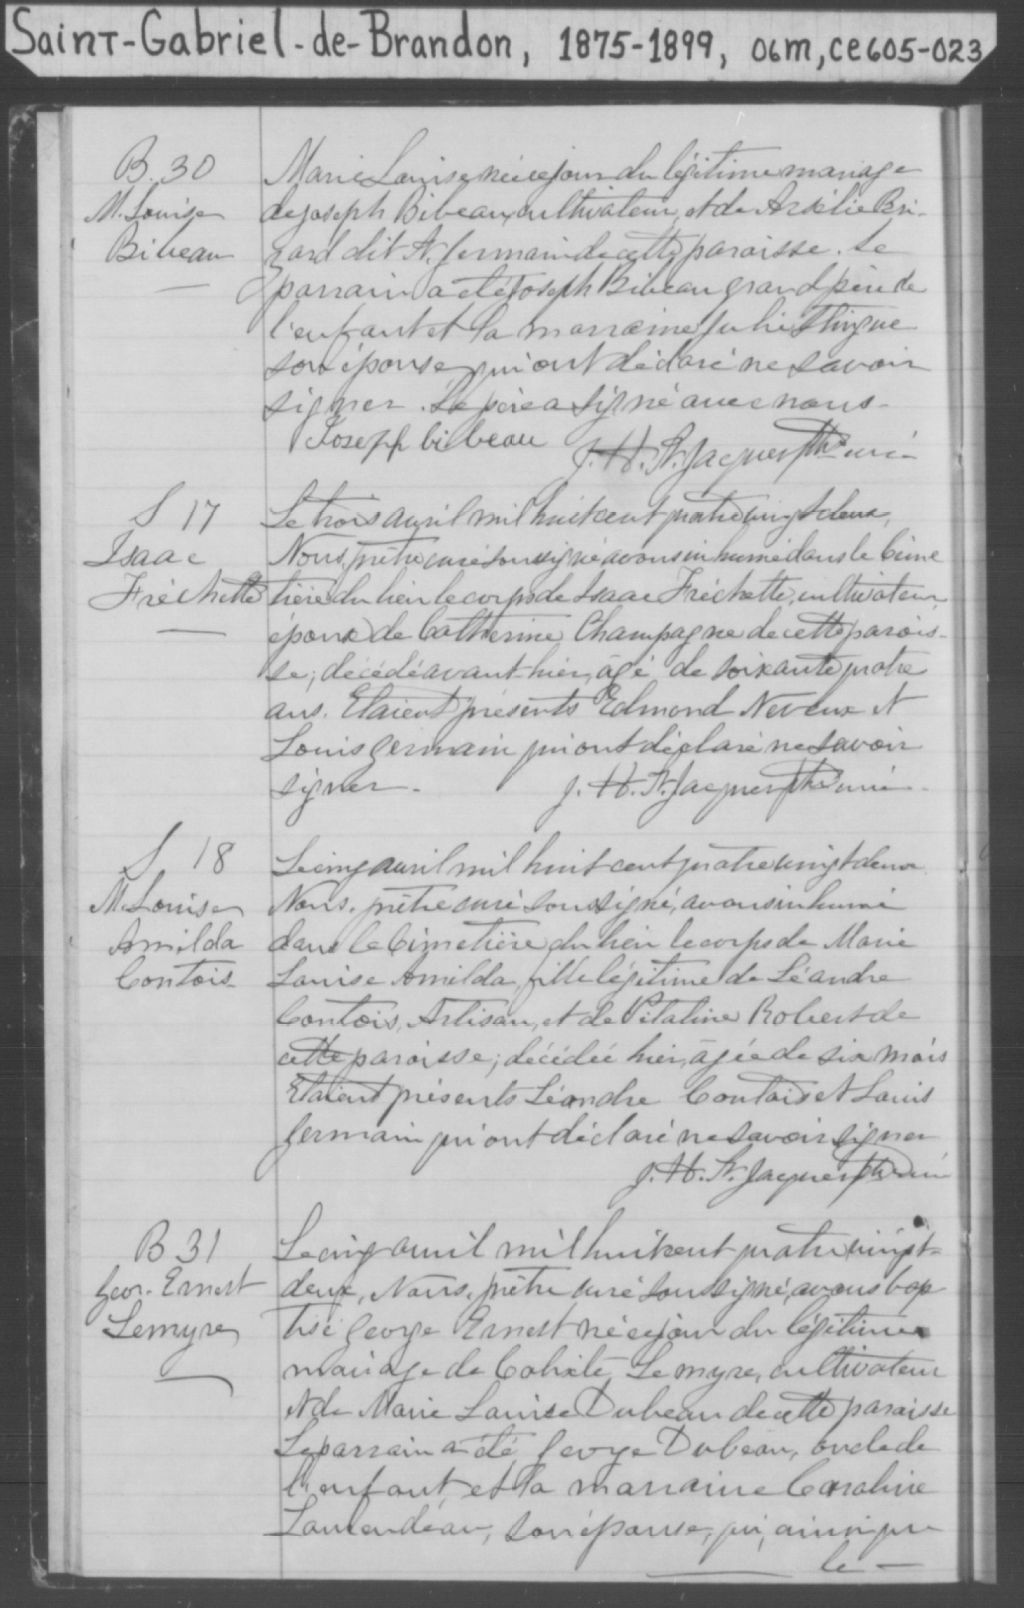 Saint-Gabriel-de-Brandon, 1875-1899, 06m, ce605-023
B. 30
M. Louise
Bibeau
Marie Louise née ce jour du légitime mariage
de Joseph Bibeau, cultivateur, et de Bri-
zard dit St. Germain de cette paroisse. Le
parrain a été Joseph Bibeau grand père de
l'enfant et la marraine Julie
son épouse qui ont déclaré ne savoir
signer. Le père a signé avec nous.
Joseph bibeau J. H. St. Jacques Ptre curé
S 17
Isaac
Fréchette
Le trois avril mil huit cent quatre vingt deux,
Nous, prêtre curé soussigné avons inhumé dans le Cime
tière du lieu le corps de Isaac Fréchette, cultivateur,
époux de Catherine Champagne de cette parois-
se; décédé avant hier, âgé de soixante quatre
ans. Etaient présents Edmond Neveux et
Louis Germain qui ont déclaré ne savoir
signer. J. H. St. Jacques Ptre curé
S 18
M. Louise
Armilda
Contois
Le cinq avril mil huit cent quatre vingt deux
Nous, prêtre curé soussigné, avons inhumé
dans le Cimetière du lieu le corps de Marie
Louise Armilda, fille légitime de Léandre
Contois, Artisan, et de Vitaline Robert de
cette paroisse; décédée hier, âgée de six mois
Etaient présents Léandre Contois et Louis
Germain qui ont déclaré ne savoir signer
J. H. St. Jacques Ptre curé
B 31
Geor. Ernest
Lemyre
Le cinq avril mil huit cent quatre vingt-
deux, Nous, prêtre curé soussigné, avons bap
tisé George Ernest né ce jour du légitime
mariage de Calixte Lemyre, cultivateur
et de Marie Louise Dubeau de cette paroisse
Le parrain a été George Dubeau, oncle de
l'enfant, et la marraine Caroline
son épouse, qui, ainsi que
le